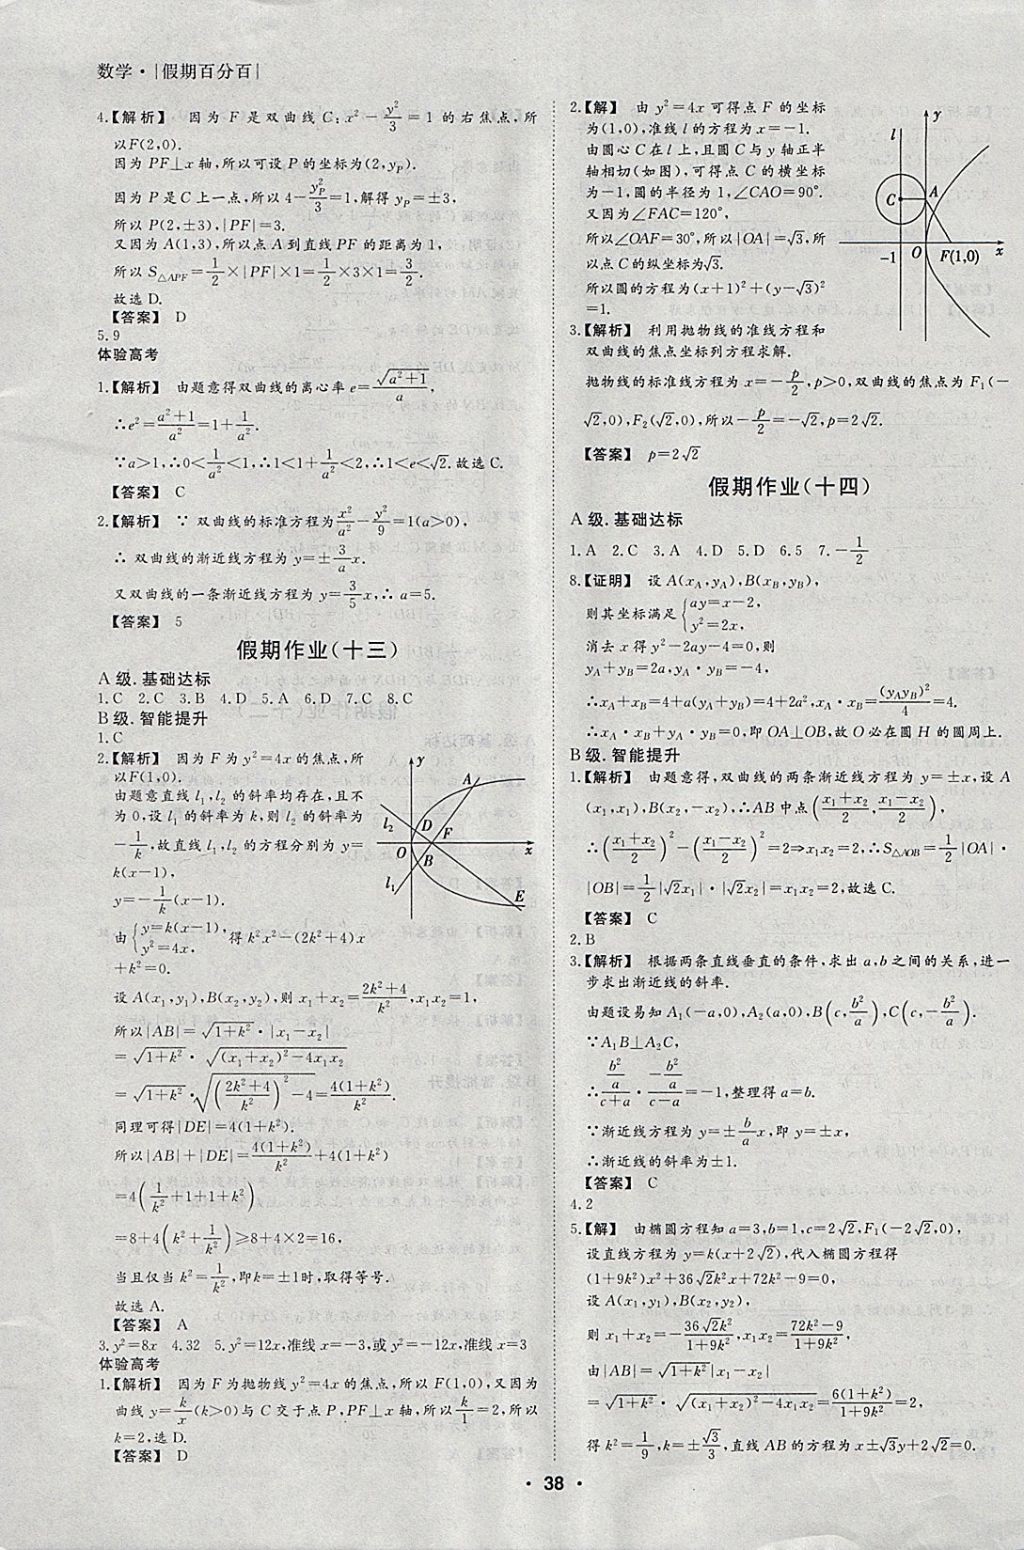 数学·|假期百分百|
4.【解析】 因为 F 是双曲线 C:x²-y²/3=1 的右焦点,所
以F(2,0).
因为 PF⊥x 轴,所以可设 P 的坐标为(2,y_P).
因为 P 是 C 上一点,所以 4-y_P²/3=1,解得 y_P=±3,
所以 P(2,±3),|PF|=3.
又因为 A(1,3),所以点 A 到直线 PF 的距离为 1,
所以 S△APF=1/2×|PF|×1=1/2×3×1=3/2.
故选 D.
【答案】 D
5.9
体验高考
1.【解析】 由题意得双曲线的离心率 e=√(a²+1)/a.
∴e²=(a²+1)/a²=1+1/a².
∵a>1,∴0<1/a²<1,∴1<1+1/a²<2,∴1<e<√2.故选 C.
【答案】 C
2.【解析】 ∵ 双曲线的标准方程为x²/a²-y²/9=1(a>0),
∴ 双曲线的渐近线方程为 y=±3/a x.
又双曲线的一条渐近线方程为 y=3/5 x,∴ a=5.
【答案】 5
假期作业(十三)
A 级.基础达标
1.C 2.C 3.B 4.D 5.A 6.D 7.C 8.C
B 级.智能提升
1.C
2.【解析】 因为 F 为 y²=4x 的焦点,所
以F(1,0).
由题意直线 l₁,l₂ 的斜率均存在,且不
为 0,设 l₁ 的斜率为 k,则 l₂ 的斜率为
-1/k,故直线 l₁,l₂ 的方程分别为 y=
k(x-1),
y=-1/k(x-1).
由{y=k(x-1), y²=4x, 得 k²x²-(2k²+4)x
+k²=0.
设 A(x₁,y₁),B(x₂,y₂),则 x₁+x₂=(2k²+4)/k²,x₁x₂=1,
所以|AB|=√(1+k²)·|x₁-x₂|
=√(1+k²)·√((x₁+x₂)²-4x₁x₂)
=√(1+k²)·√(((2k²+4)/k²)²-4)=4(1+k²)/k².
同理可得|DE|=4(1+k²).
所以|AB|+|DE|=4(1+k²)/k²+4(1+k²)
=4(1/k²+1+1+k²)
=8+4(k²+1/k²)≥8+4×2=16,
当且仅当 k²=1/k²,即k=±1时,取得等号.
故选 A.
【答案】 A
3.y²=8x 4.32 5.y²=12x,准线 x=-3,或 y²=-12x,准线 x=3
体验高考
1.【解析】 因为 F 为抛物线 y²=4x 的焦点,所以 F(1,0),又因为
曲线 y=k/x(k>0)与 C 交于点 P,PF⊥x 轴,所以 k/1=2,所以
k=2,选 D.
【答案】 D
y
A
l₂
D
F
O
B
x
l₁
E
2.【解】 由 y²=4x 可得点 F 的坐标
为(1,0),准线 l 的方程为 x=-1.
由圆心 C 在 l 上,且圆 C 与 y 轴正半
轴相切(如图),可得点 C 的横坐标
为-1,圆的半径为 1,∠CAO=90°.
又因为∠FAC=120°,
所以∠OAF=30°,所以|OA|=√3,所
以点 C 的纵坐标为√3.
所以圆的方程为(x+1)²+(y-√3)²
=1.
y
l
C
A
-1
O
F(1,0)
x
3.【解析】 利用抛物线的准线方程和
双曲线的焦点坐标列方程求解.
抛物线的标准线方程为 x=-p/2,p>0,双曲线的焦点为 F₁(-
√2,0),F₂(√2,0),所以-p/2=-√2,p=2√2.
【答案】 p=2√2
假期作业(十四)
A 级.基础达标
1.A 2.C 3.A 4.D 5.D 6.5 7.-1/2
8.【证明】 设 A(x_A,y_A),B(x_B,y_B),
则其坐标满足{ay=x-2, y²=2x,
消去 x 得 y²-2ay-4=0,则
y_A+y_B=2a,y_A·y_B=-4.
∴x_A+x_B=4+a(y_A+y_B)=4+2a²,x_A·x_B=(y_Ay_B)²/4=4.
∴x_A·x_B+y_A·y_B=0,即 OA⊥OB,故 O 必在圆 H 的圆周上.
B 级.智能提升
1.【解析】 由题意得,双曲线的两条渐近线方程为 y=±x,设 A
(x₁,x₁),B(x₂,-x₂),∴AB 中点((x₁+x₂)/2,(x₁-x₂)/2),
∴((x₁+x₂)/2)²-((x₁-x₂)/2)²=2⇒x₁x₂=2,∴S△AOB=1/2|OA|·
|OB|=1/2|√2x₁|·|√2x₂|=x₁x₂=2,故选 C.
【答案】 C
2.B
3.【解析】 根据两条直线垂直的条件,求出 a,b 之间的关系,进一
步求出渐近线的斜率.
由题设易知 A₁(-a,0),A₂(a,0),B(c,b²/a),C(c,-b²/a).
∵A₁B⊥A₂C,
∴(b²/a)/(c+a)·(-b²/a)/(c-a)=-1,整理得 a=b.
∵渐近线方程为 y=±b/a x,即 y=±x,
∴渐近线的斜率为±1.
【答案】 C
4.2
5.【解】 由椭圆方程知 a=3,b=1,c=2√2.F₁(-2√2,0),
设直线方程为 y=k(x+2√2),代入椭圆方程得
(1+9k²)x²+36√2k²x+72k²-9=0,
设 A(x₁,y₁),B(x₂,y₂),
则 x₁+x₂=-36√2k²/(1+9k²),x₁x₂=(72k²-9)/(1+9k²),
由|AB|=√(1+k²)|x₁-x₂|
=√(1+k²)·√((x₁+x₂)²-4x₁x₂)=6(1+k²)/(1+9k²)=2,
得 k²=1/3,k=±√3/3,直线 AB 的方程为 x±√3y+2√2=0.
· 38 ·